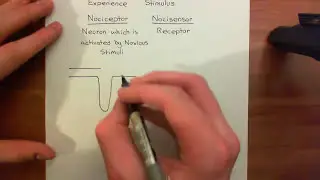 Experience Stimulus
Nociceptor Nocisensor
Neuron which is Receptor
activated by Noxious
Stimuli